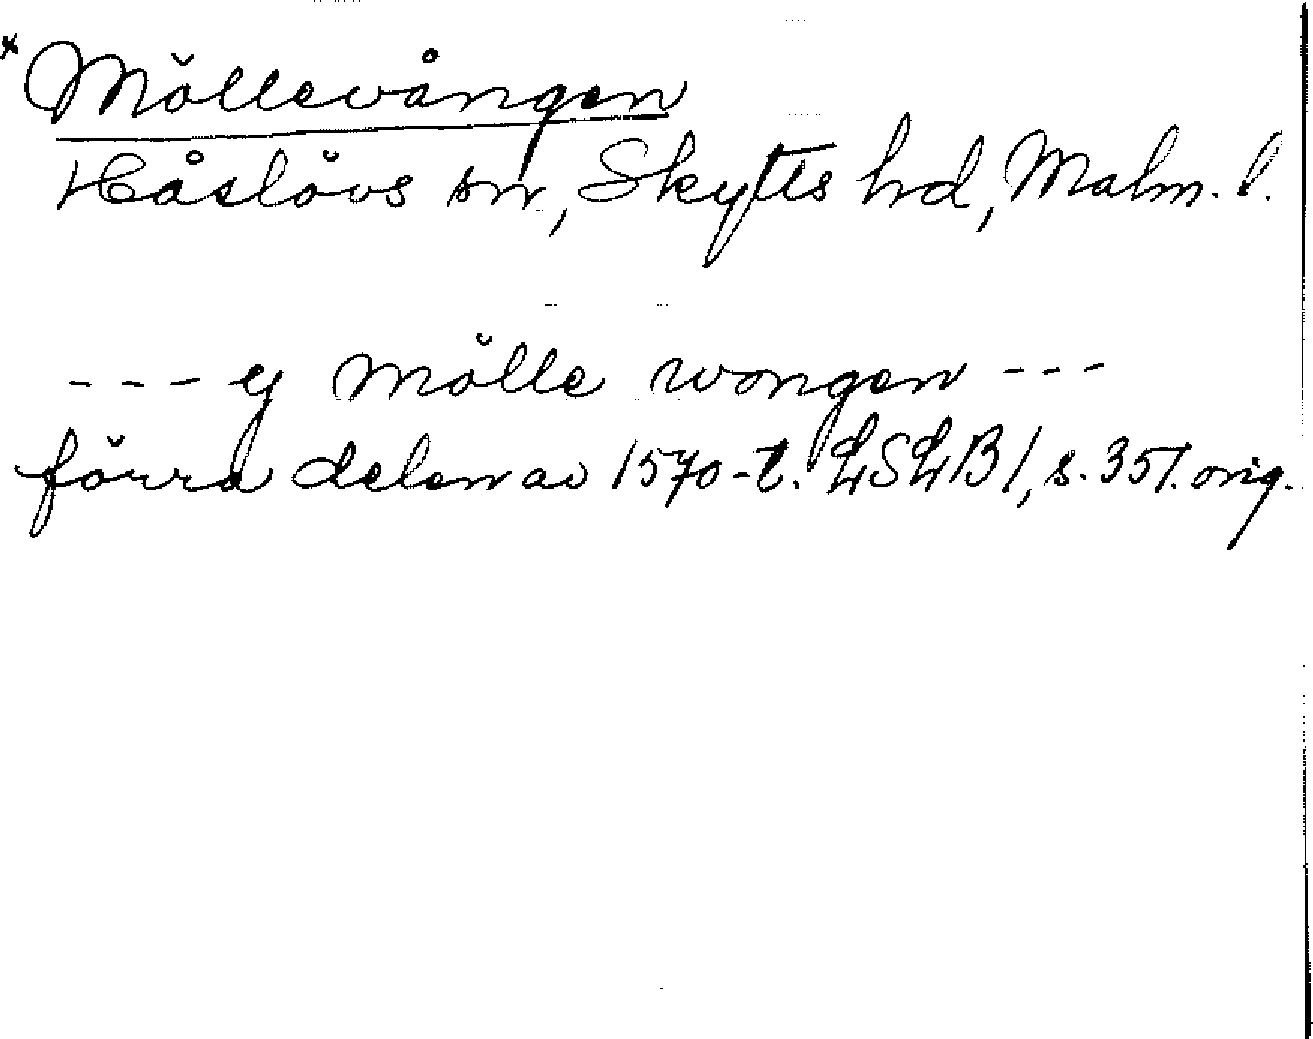 * Möllevången
Håslövs sn, Skytts hd, Malm. l.
--- ej Mölle wongen ---
förra delen av 1570-t. LSLB 1, s. 351. orig.